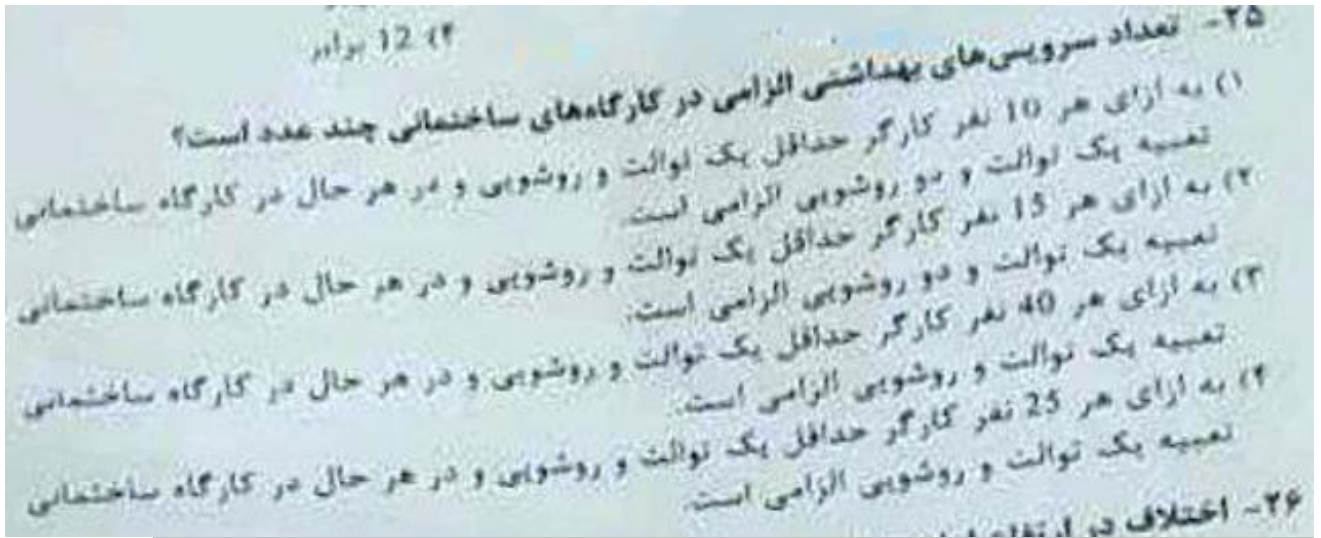 ۴) 12 برابر
۲۵- تعداد سرویس‌های بهداشتی الزامی در کارگاه‌های ساختمانی چند عدد است؟
۱) به ازای هر 10 نفر کارگر حداقل یک توالت و روشویی و در هر حال در کارگاه ساختمانی
تعبیه یک توالت و دو روشویی الزامی است.
۲) به ازای هر 15 نفر کارگر حداقل یک توالت و روشویی و در هر حال در کارگاه ساختمانی
تعبیه یک توالت و دو روشویی الزامی است.
۳) به ازای هر 40 نفر کارگر حداقل یک توالت و روشویی و در هر حال در کارگاه ساختمانی
تعبیه یک توالت و روشویی الزامی است.
۴) به ازای هر 25 نفر کارگر حداقل یک توالت و روشویی و در هر حال در کارگاه ساختمانی
تعبیه یک توالت و روشویی الزامی است.
۲۶- اختلاف در ارتفاع